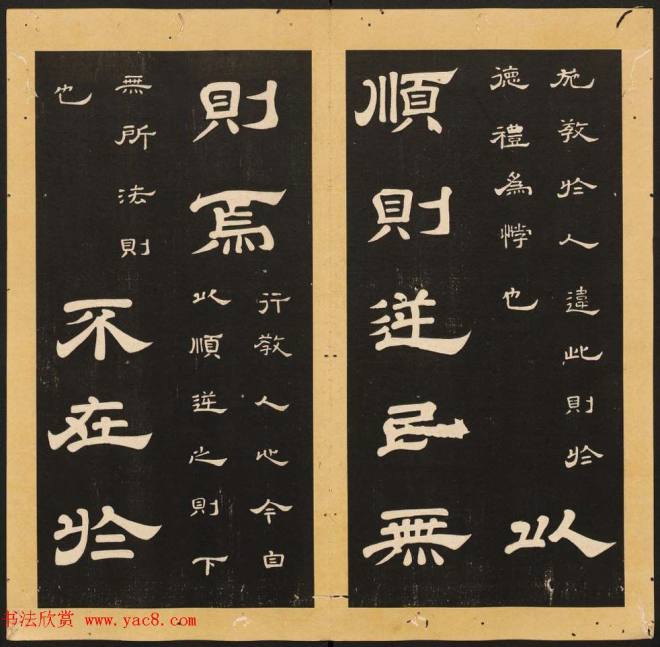 施教於人違此則於
德禮為悖也
以
順則逆民無
則焉
行教人心今自
以順逆之則下
無所法則
也
不在於
书法欣赏 www.yac8.com